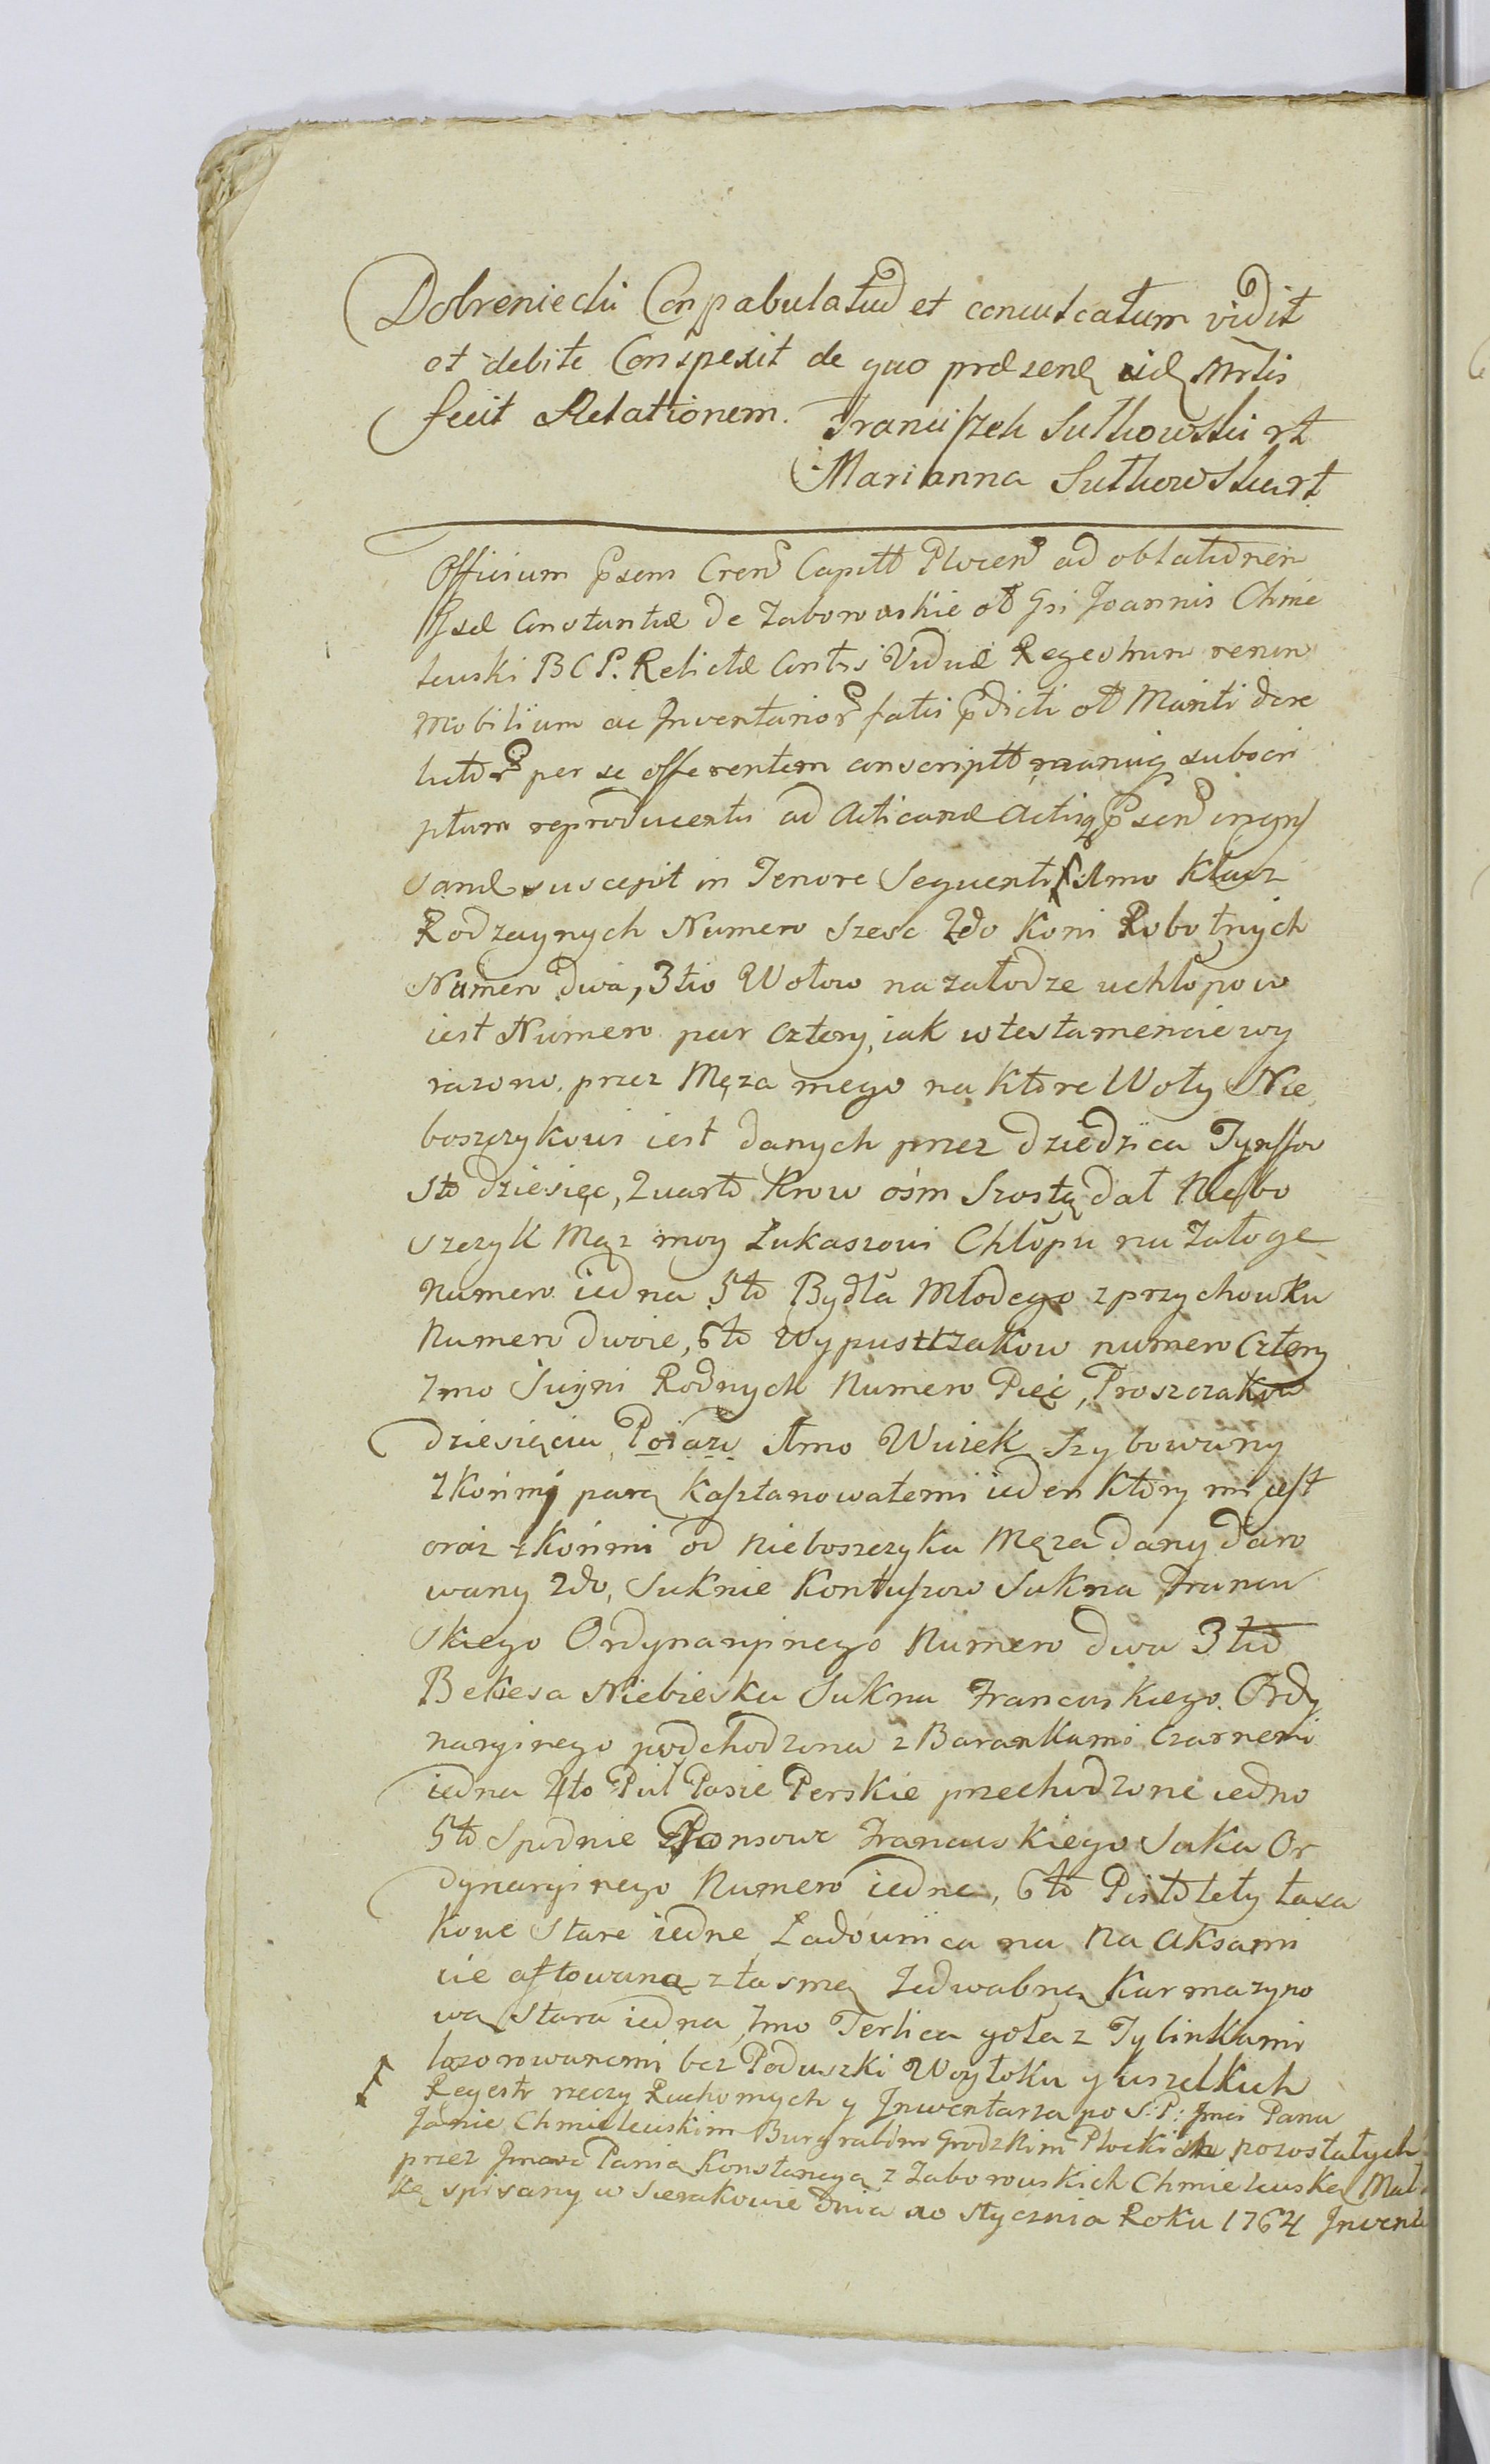 Dobreniecki Conpabulatūd et conculcatum vidit
et debite Conspexit de quo præsenę Mrlis
fecit Relationem. Franciszek Sutkowski rt
Marianna Sutkowska rt
Officium Psens Cren Capitt Plocen ad oblationen
Gsæ Constantiæ De Zaborowskie ol Gsi Joannis Chmie
lewski B C P. Relictæ Contis Viduæ Regestrum rerum
Mobilium ac Inventarior fatis pdicti ol Mariti dere
lictor per se offerentem conscriptt manuiq subscri
ptum reproducentis ad Acticand Actisq Psen ingrs
sand suscepit in Tenore Sequenti 1mo Klacz
Rodzaynych Numero szesc 2do Koni Robotnych
Numero Dwa, 3tio Wołow na załodze u chłopow
iest Numero par cztery, iak w testamencie wy
razono przez Męza mego na które Woły Nie
boszczykowi iest danych przez dziedzica Tynffow
sto dziesięc, Quarto Krow ośm Szostą dał Niebo
szczyk Męz moy Łukaszowi Chłopu na Załogę
Numero iedna 5to Bydła Młodego z przychowku
Numero dwoie, 6to Wypustczakow numero cztery
7mo Swini Rodnych Numero Pięc, Proszczakow
dziesięciu, Poiazu 1mo Wozek szybowany
z końmi parą kasztanowatemi ieden który mi iest
oraz z końmi od nieboszczyka Męza dany daro
wany 2do, Suknie Kontuszow Sukna Francu
skiego Ordynaryinego Numero dwa 3tio
Bekiesa Niebieska Sukna Francuskiego Ordy
naryinego podchodzona z Barankami Czarnemi
iedna 4to Puł Pasie Perskie przechodzone iedno
5to Spodnie Ponsowe Francuskiego Suka Or
dynaryinego Numero iedne, 6to Pistolety
stare iedne Ładownica na na aksami
cie aftowaną z tasmą Jedwabną Karmazyno
wą stara iedna, 7mo Terlica goła z Tylinkami
lazorowanemi bez Poduszki Woyłoku y wszelkich
Regestr rzeczy Ruchomych y Inwentarza po S: P: Jmci Panu
Janie Chmielewskim Burgrabim Grodzkim Płockich pozostałych
przez Jmosc Panią Konstancyą z Zaborowskich Chmielewską Mał
kę spisany w Sierakowie Dnia 20 stycznia Roku 1764 Inwent